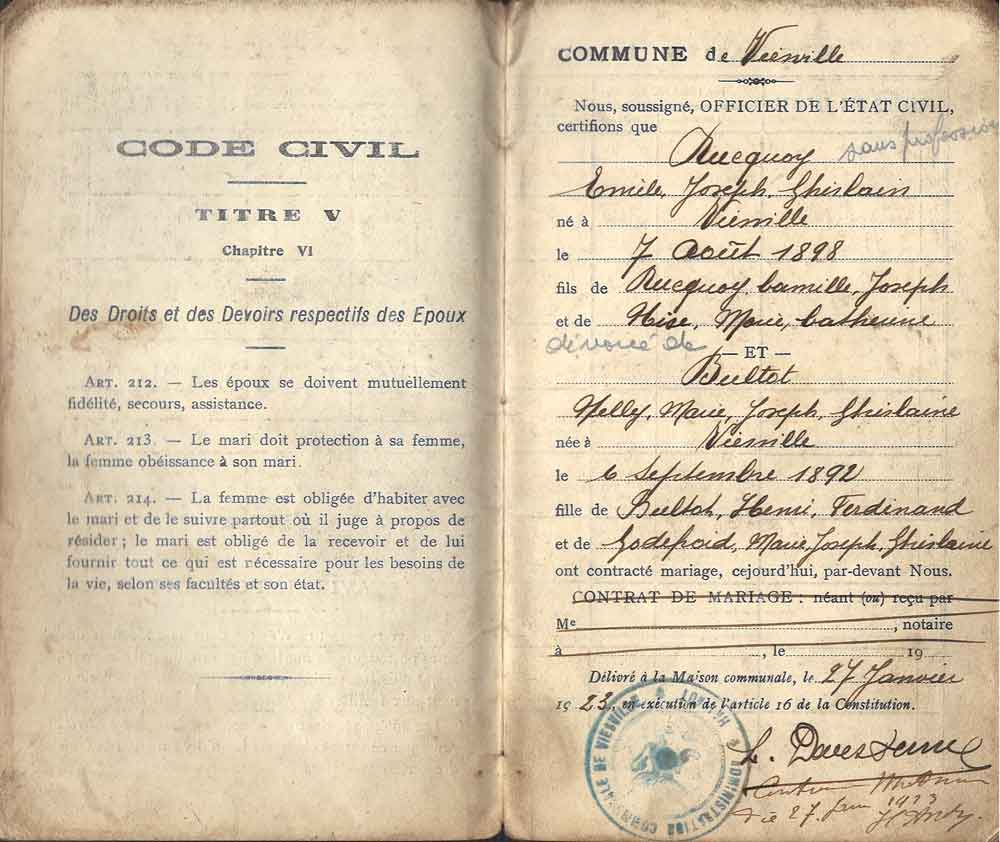 CODE CIVIL
TITRE V
Chapitre VI
Des Droits et des Devoirs respectifs des Epoux
ART. 212. — Les époux se doivent mutuellement
fidélité, secours, assistance.
ART. 213. — Le mari doit protection à sa femme,
la femme obéissance à son mari.
ART. 214. — La femme est obligée d'habiter avec
le mari et de le suivre partout où il juge à propos de
résider ; le mari est obligé de la recevoir et de lui
fournir tout ce qui est nécessaire pour les besoins de
la vie, selon ses facultés et son état.
COMMUNE de Viesville
Nous, soussigné, OFFICIER DE L'ÉTAT CIVIL,
certifions que
sans profession
Rucquoy
Emile, Joseph, Ghislain
né à Viesville
le 7 Août 1898
fils de Rucquoy, Camille, Joseph
et de Marie, Catherine
divorcé de
— ET —
Bultot
Nelly, Marie, Joseph, Ghislaine
née à Viesville
le 6 Septembre 1892
fille de Bultot, Henri, Ferdinand
et de Godefroid, Marie, Joseph, Ghislaine
ont contracté mariage, cejourd'hui, par-devant Nous.
CONTRAT DE MARIAGE : néant (ou) reçu par
Me , notaire
à , le 19
Délivré à la Maison communale, le 27 Janvier
1923, en exécution de l'article 16 de la Constitution.
ADMINISTRATION COMMUNALE DE VIESVILLE
27 1923